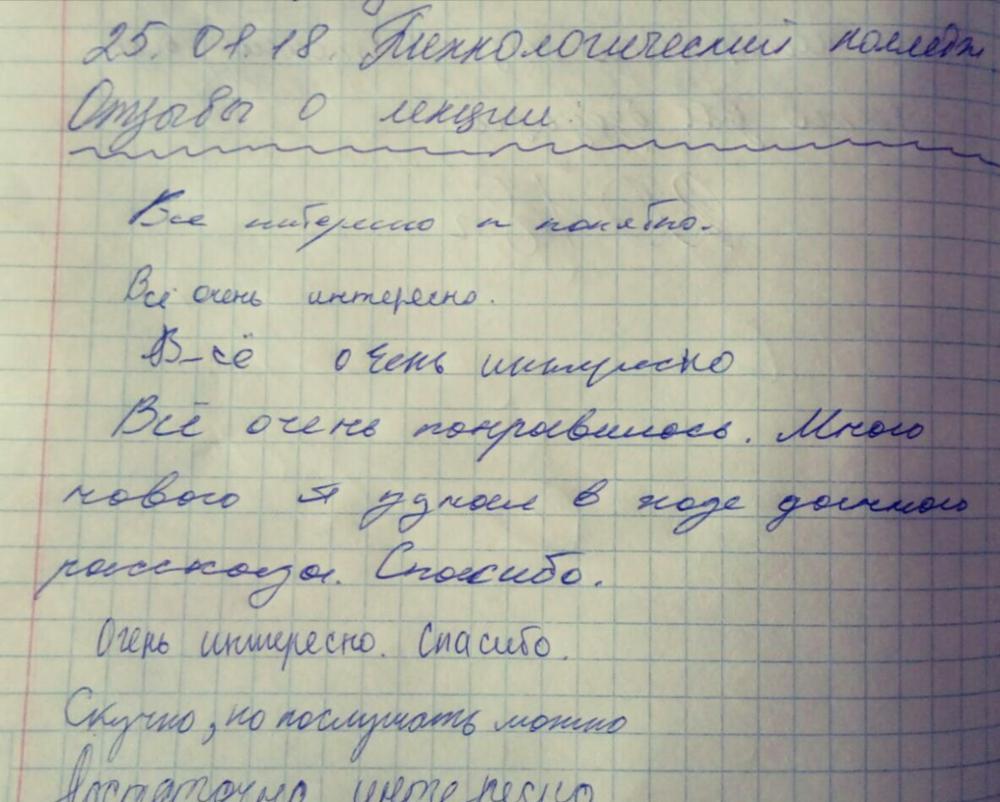 25.01.18. Технологический колледж
Отзывы о лекции:
Все интересно и понятно.
Всё очень интересно.
В-сё очень интересно
Всё очень понравилось. Много
нового я узнал в ходе данного
рассказа. Спасибо.
Очень интересно. Спасибо.
Скучно, но послушать можно
Достаточно интересно